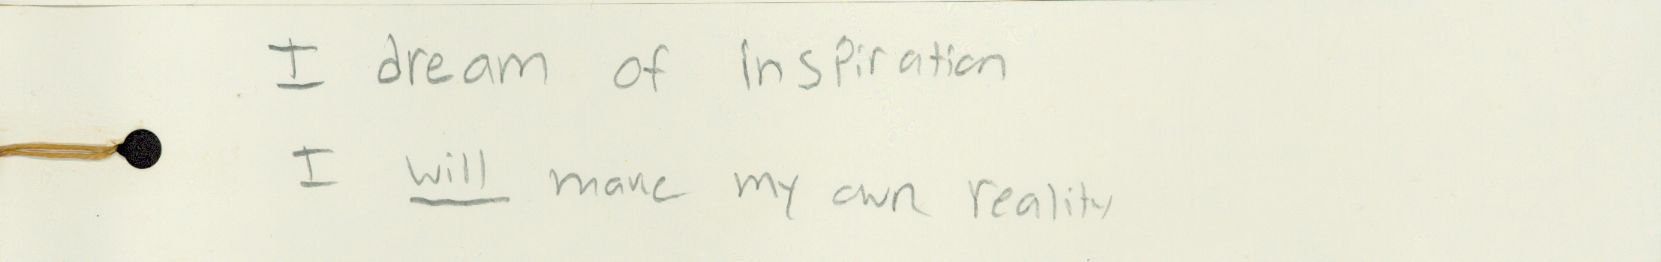 I dream of Inspiration
I will make my own reality